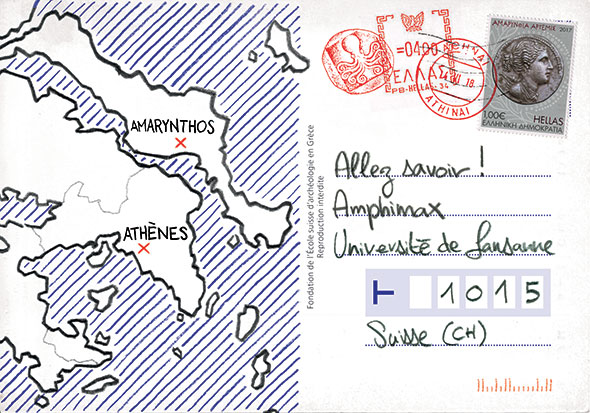 AMARYNTHOS
ATHÈNES
Fondation de l'École suisse d'archéologie en Grèce
Reproduction interdite
=0400
ΕΛΛΑΣ
PB-HELLAS-34
ΑΘΗΝΑΙ
ATHINAI
ΑΜΑΡΥΝΘΙΑ ΑΡΤΕΜΙΣ 2017
1,00€ HELLAS
ΕΛΛΗΝΙΚΗ ΔΗΜΟΚΡΑΤΙΑ
Allez savoir !
Amphimax
Université de Lausanne
1015
Suisse (CH)